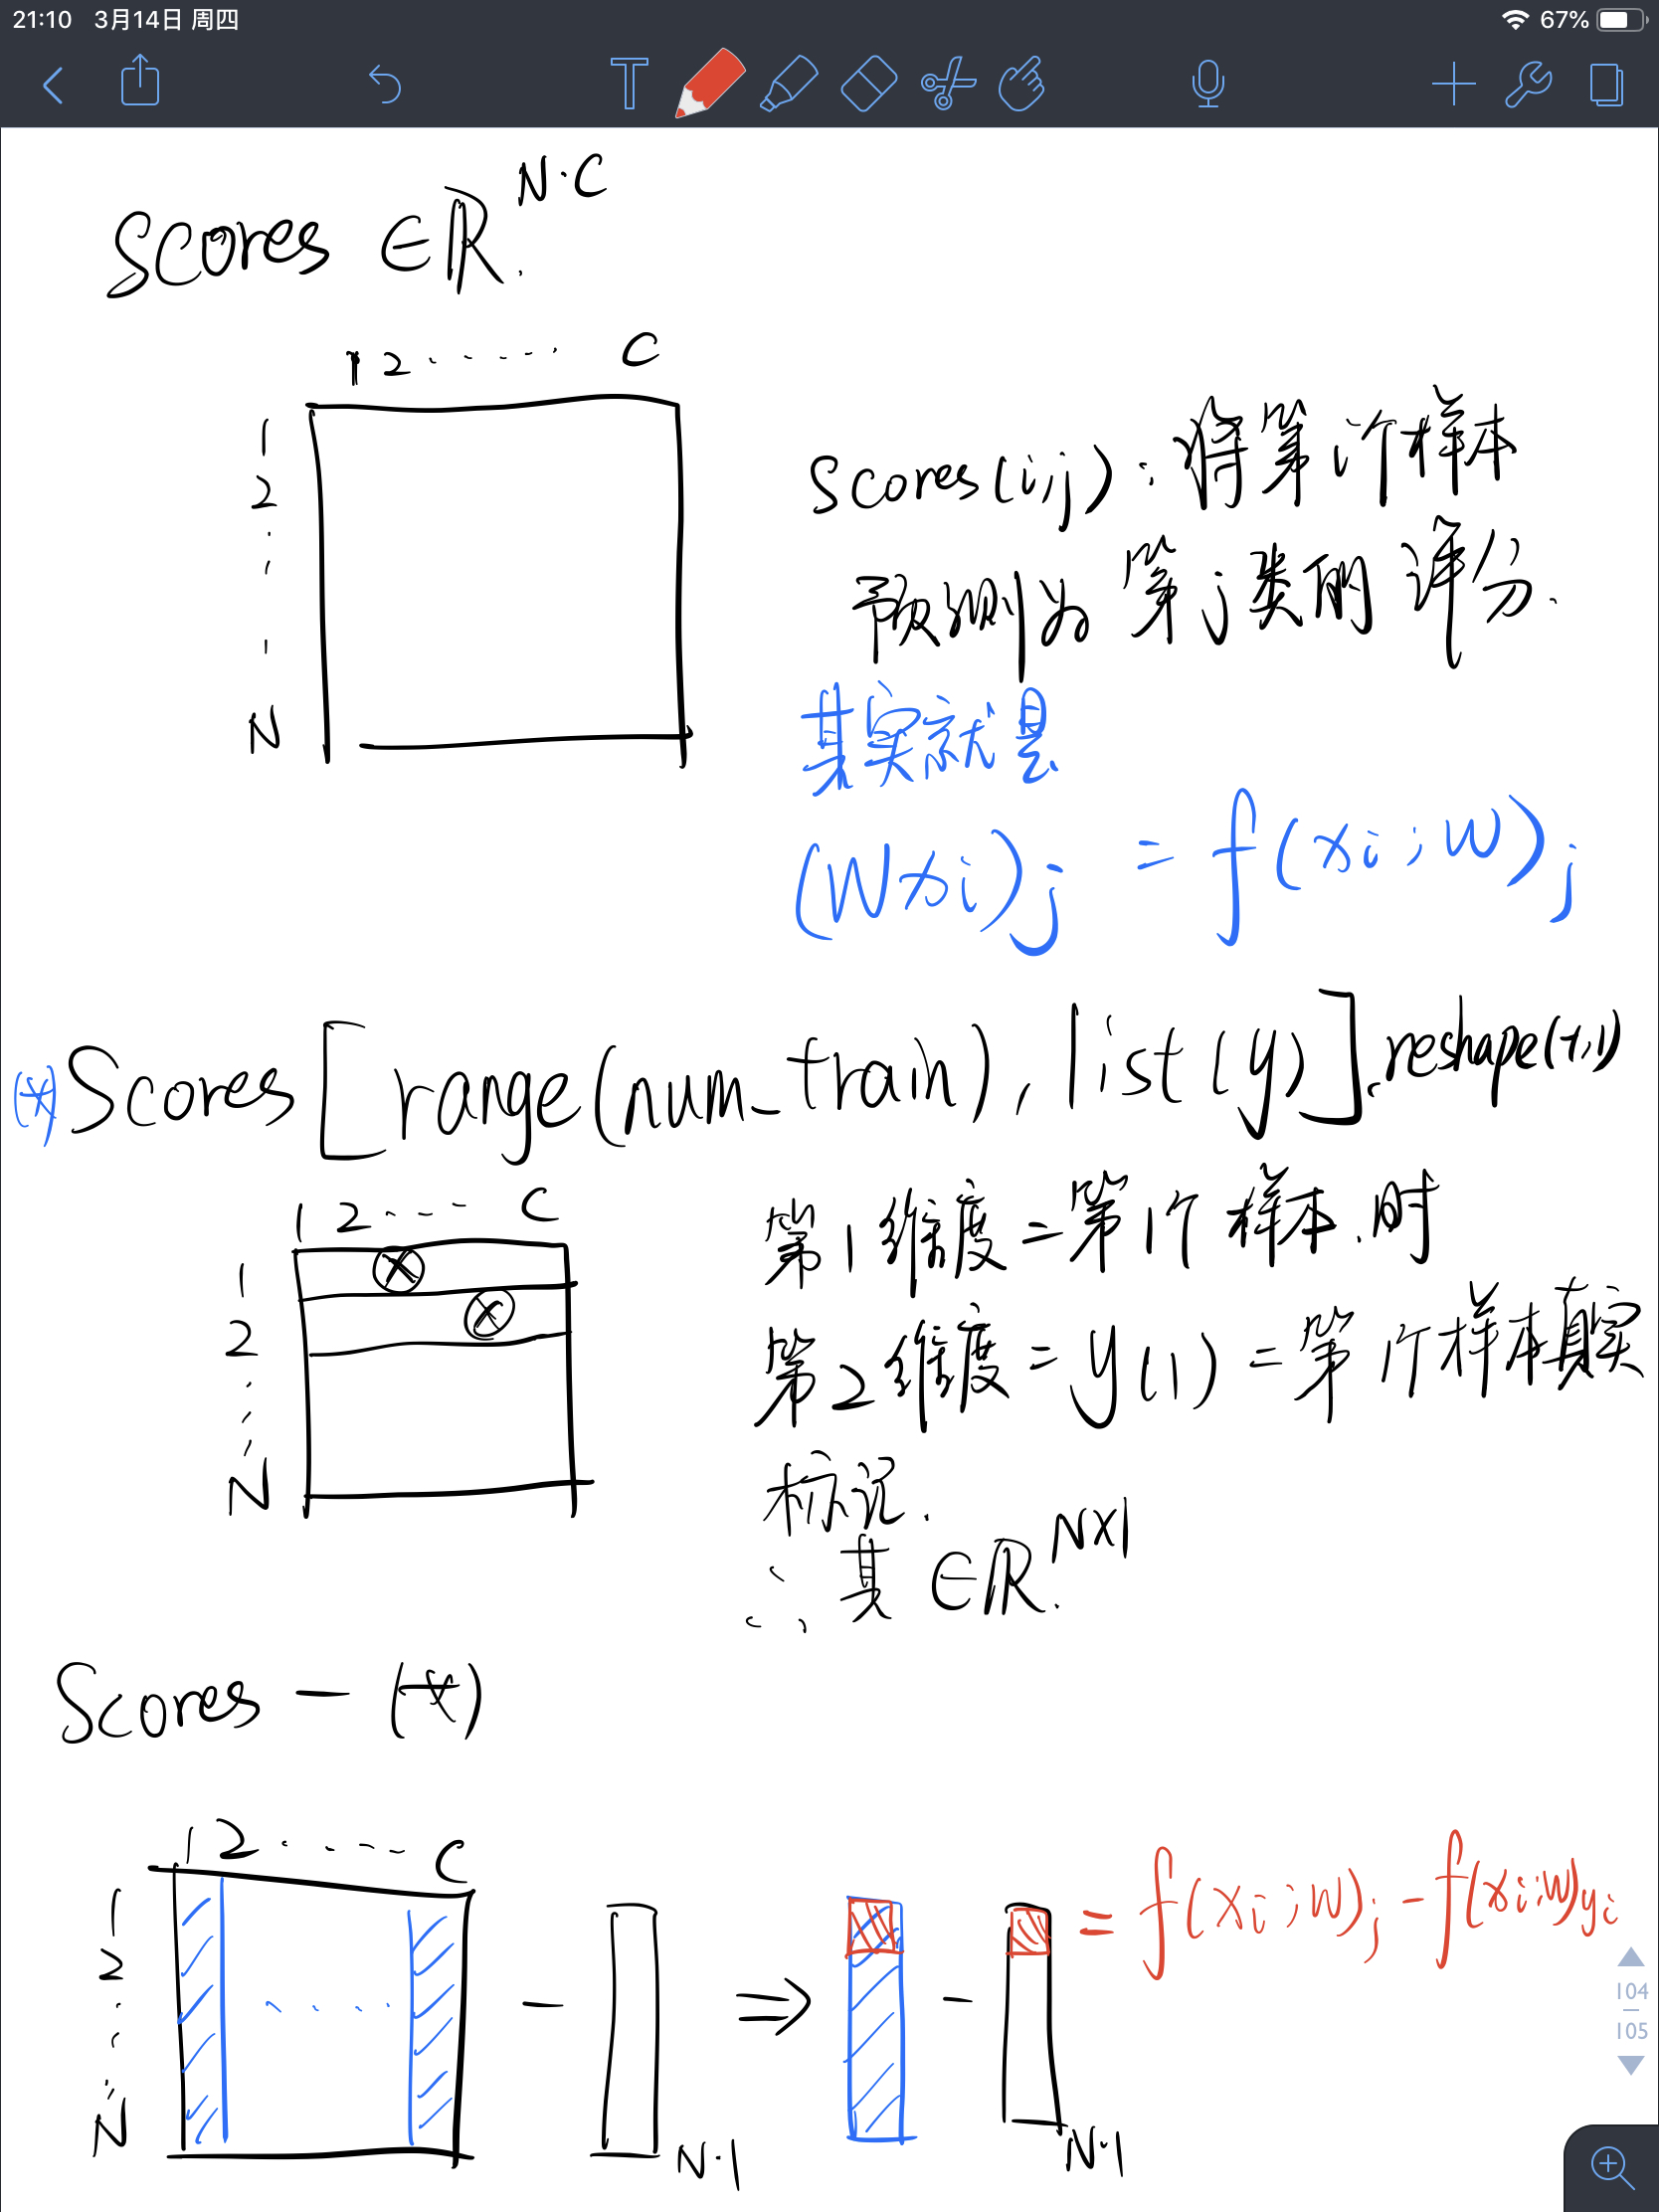 21:10 3月14日 周四 67%
Scores ∈ ℝ^{N·C}
1 2 ····· C
1
2
N
Scores(i,j):将第i个样本
预测为第j类的评分.
其实就是
(Wxi)j = f(xi;W)j
(*) Scores[range(num_train), list(y)].reshape(-1,1)
1 2 ···· C
1
2
N
第1维度=第1个样本.时
第2维度=y(1)=第1个样本真实
标记.
∴其∈ℝ^{N×1}
Scores — (*)
1 2 ····· C
1
2
N
····
− ⇒ − = f(xi;W)j - f(xi;W)yi
N·1 N·1
104
105